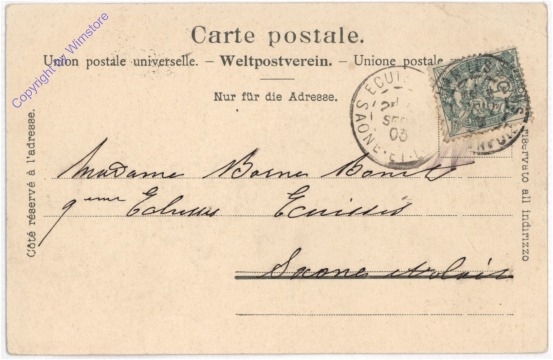 Copyright by Wimstore
Carte postale.
Union postale universelle. – Weltpostverein. – Unione postale
Nur für die Adresse.
ECUI
SEPT
03
SAONE-ET-L
Côté réservé à l'adresse.
riservato all indirizzo
Madame Borne
9ème Ecluses Ecuisses
Saone et Loire